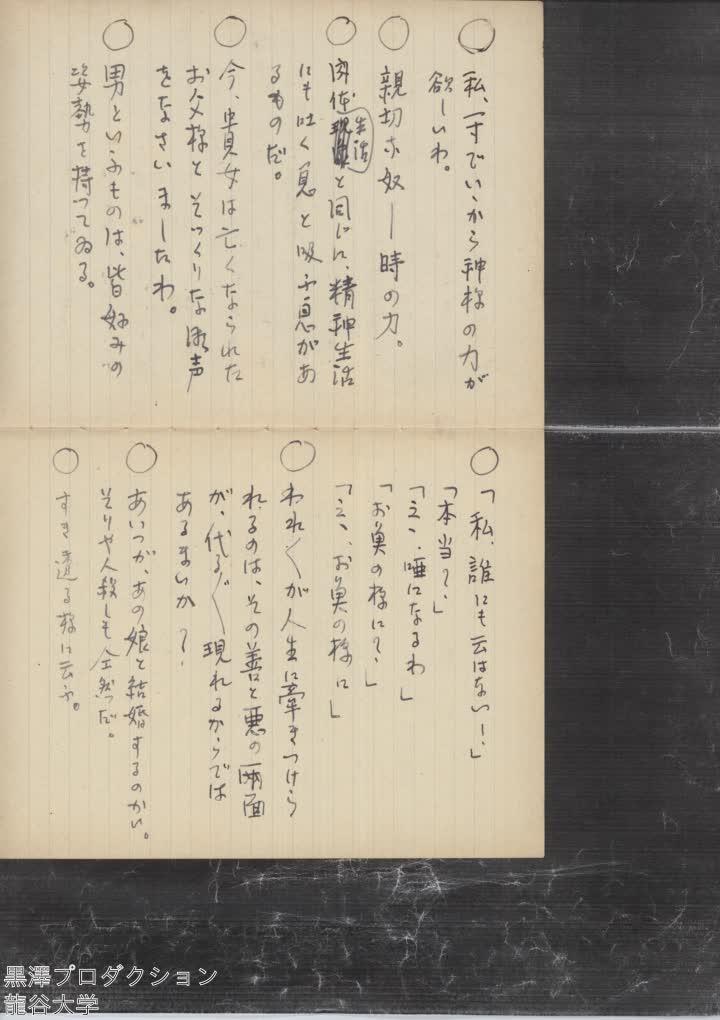 ○ 私、一寸でいゝから神様の力が
欲しいわ。
○ 親切ホ奴ー時の力。
○ 肉体生活と同じに、精神生活
にも吐く息と吸ふ息があ
るものだ。
○ 今、貴女は亡くなられた
お父様とそっくりな
声
をなさいましたわ。
○ 男といふものは、皆好みの
姿勢を持ってゐる。
○ 「私、誰にも云はないー、」
「本当?、」
「えゝ、唖になるわ」
「お魚の様に?、」
「えゝ、お魚の様に」
○ われ〱が人生に牽きつけら
れるのは、その善と悪の両面
が、代る〲現れるからでは
あるまいか?
○ あいつが、あの娘と結婚するのかい。
そりや人殺しも仝然だ。
○ すき透る様に云ふ。
黒澤プロダクション
龍谷大学